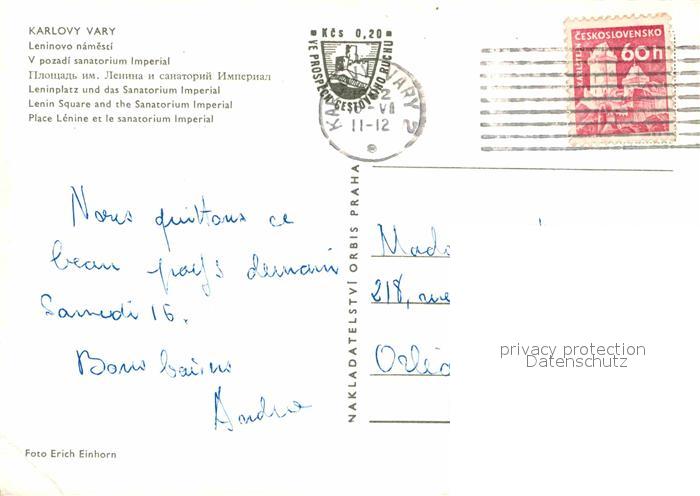 KARLOVY VARY
Leninovo náměstí
V pozadí sanatorium Imperial
Площадь им. Ленина и санаторий Империал
Leninplatz und das Sanatorium Imperial
Lenin Square and the Sanatorium Imperial
Place Lénine et le sanatorium Imperial
Kčs 0,20
VE PROSPĚCH CESTOVNÍHO RUCHU
KARLOVY VARY 2
VII
11-12
ČESKOSLOVENSKO
60h
Nous quittons ce
beau pays demain
Samedi 16.
Bons baisers
Andre
NAKLADATELSTVÍ ORBIS PRAHA
Mada
218, rue
privacy protection
Datenschutz
Foto Erich Einhorn